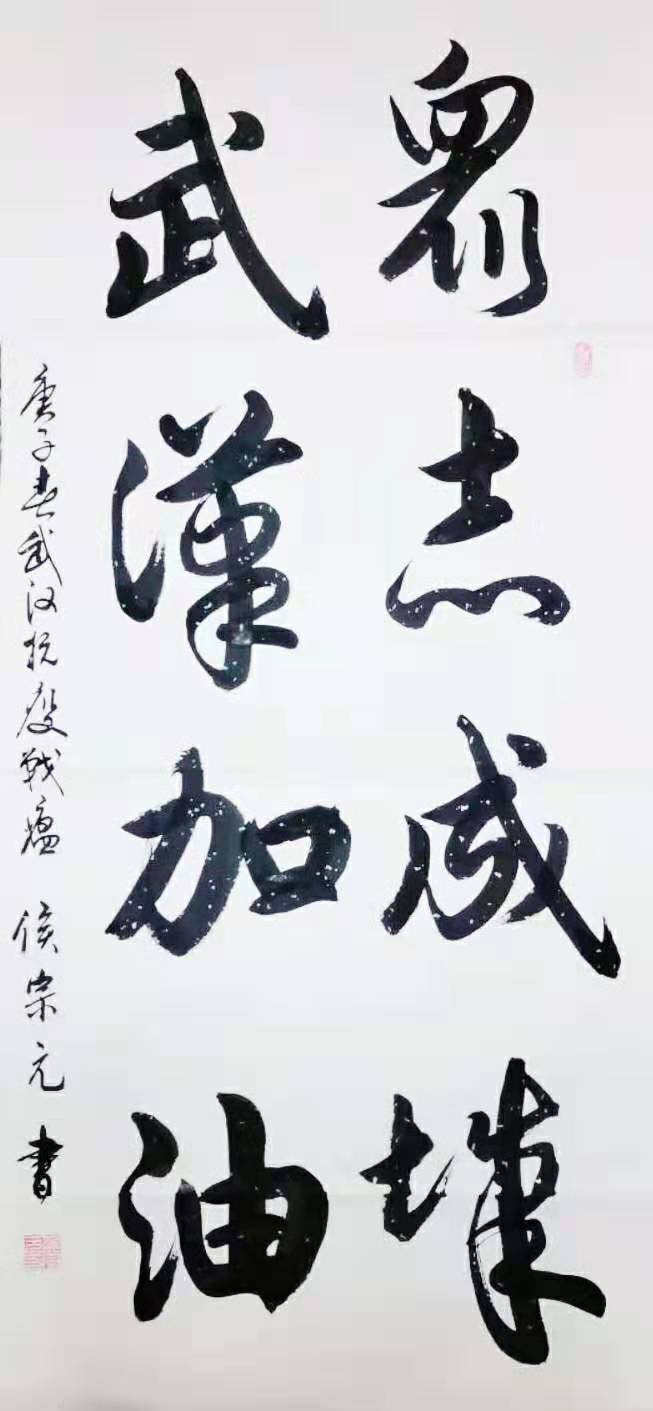 眾志成城
武漢加油
庚子春武汉抗疫战瘟 侯宗元 書